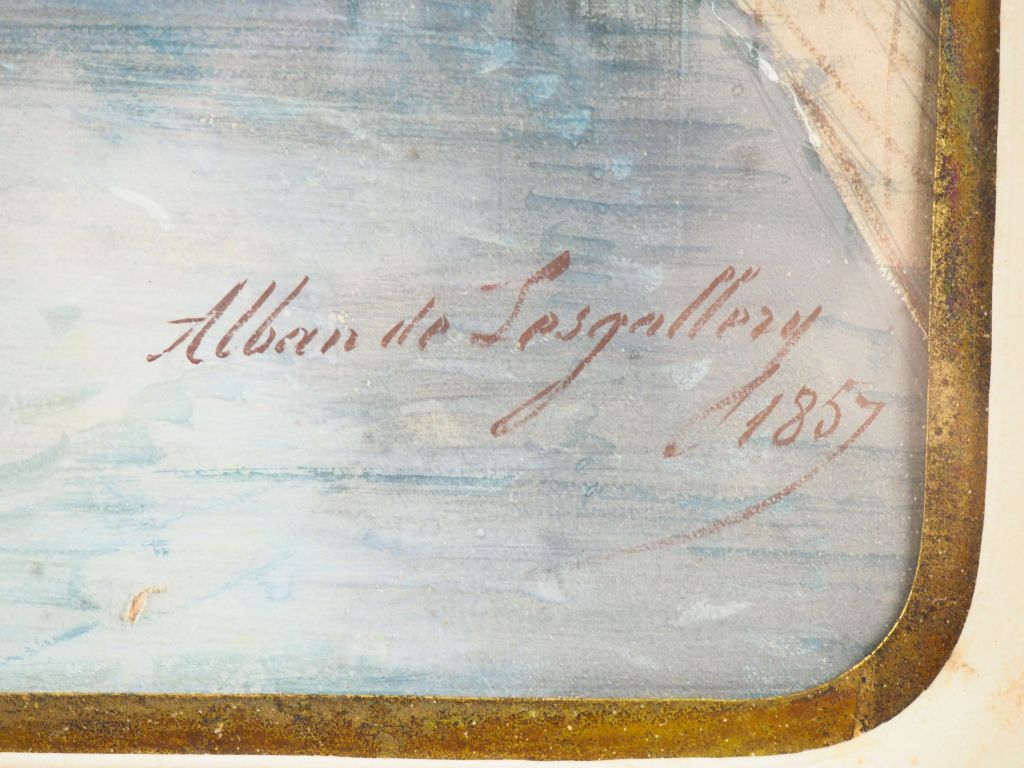 Alban de Lesgallery
1857